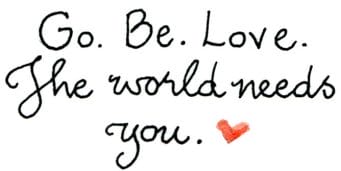 Go. Be. Love.
The world needs
you.